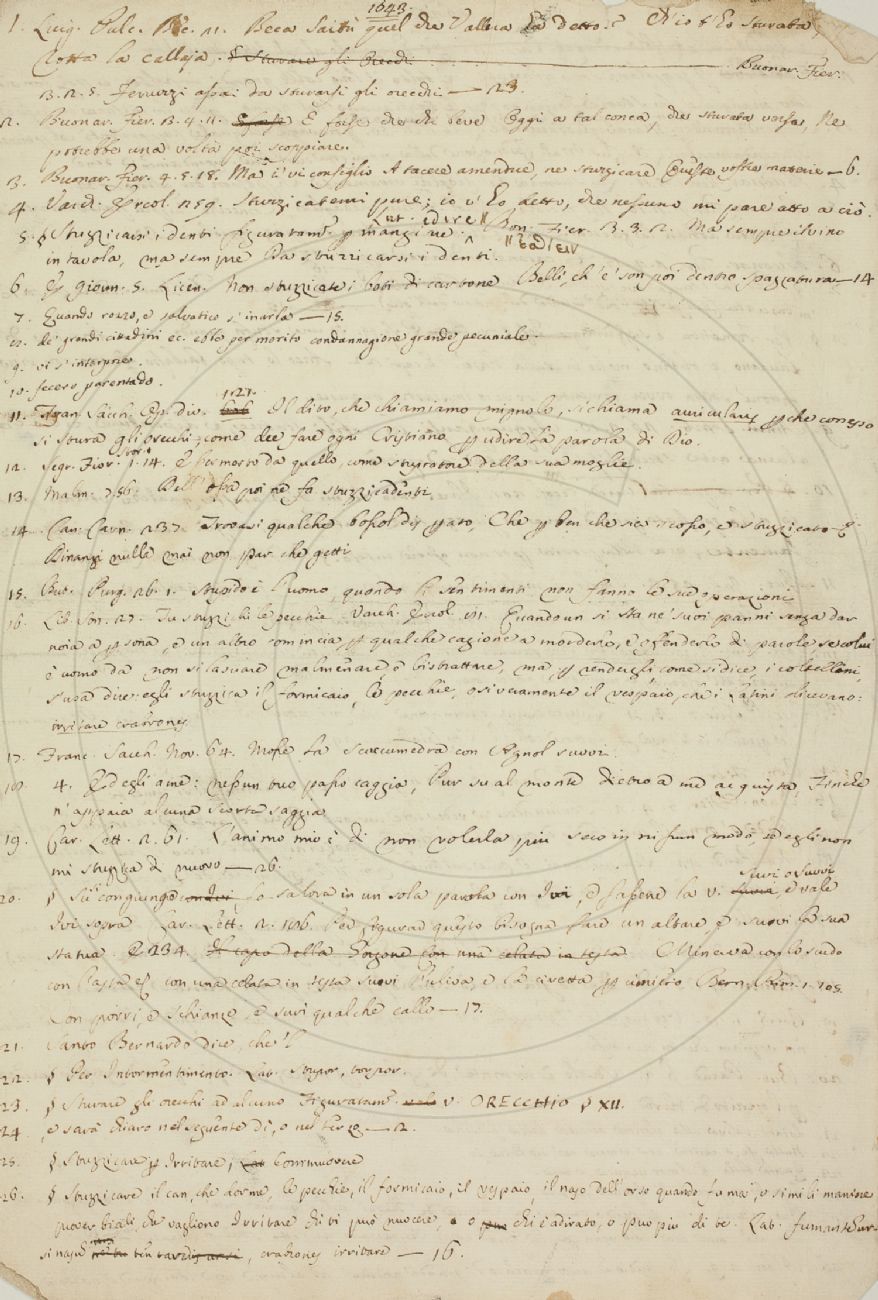 1643.
1. Luig. Pulc. Bec. 11. Beca sai tu quel che Vallera ha detto? Ch'io t'ho sturata,
Rotta la callaja. § Sturare gli Orecchi. Buonar. Fier.
3. 2. 5. Feruzzi assai da sturarsi gli orecchi — 23.
2. Buonar. Fier. 3. 4. 11. E forse che chi beve Oggi a tal conca, che sturata versa, Ne
potrebbe una volta poi scoppiare.
3. Buonar. Fier. 4. 5. 18. Ma i' vi consiglio A tacere amendue, ne stuzzicare Queste vostre materie — 6.
4. Varch. Ercol. 259. Stuzzicatemi pure; io v'ho detto, che nessuno mi pare atto a ciò.
5. § Stuzzicarsi i denti figuratam. p mangiare. Lat. edere Buon. Fier. 3. 3. 2. Ma sempre chino
in tavola, ma sempre Da stuzzicarsi i denti.
6. Ep Giovn. S. Licen. Non stuzzicate i boti di carbone Belli, ch'e' son poi dentro spazzatura — 14
7. Quando rozzo, e salvatico s'inarla — 15.
8. de' grandi cittadini ec. ebbe per merito condannagione grande pecuniale.
9. vi s'interpreo.
10. fecero parentado.
11. Fran. Sacch. Op. div. 127. Il dito, che chiamiamo mignolo, si chiama auricular, p che con esso
si stura gli orecchi; come dee fare ogni Cristiano p udire la parola di Dio.
12. Segr. Fior. Stor. 1. 14. E fu morto da quello, come stupratore della sua moglie.
13. Malm. 7. 56. poi ne fa stuzzicadenti
14. Can. Carn. 237. Trovasi qualche bossol dispgato, Che p ben che sia scosso, e stuzzicato E
Dinanzi nulla mai non par che getti
15. But. Purg. 26. 1. Stupido è l'uomo, quando li sentimenti non fanno le sue operazioni
16. Lib. Son. 27. Tu stuzzichi le pecchie Varch. Ercol. 51. Quando un si sta ne' suoi panni senza dar
noia a psona, e un altro comincia p qualche cagione a morderlo, e offenderlo di parole se colui
è uomo da non si lasciare malmenare, e bistrattare, ma p rendergli, come si dice, i coltellini,
s'usa dire: egli stuzzica il formicaio, le pecchie, o si veramente il vespaio, che i Latini dicevano:
irritare crabrones
17. Franc. Sacch. Nov. 64. Mosse la scacumedra con Agnol suvvi
18. 4. Ed egli a me: nessun tuo passo caggia, Pur su al monte dietro a me acquista, Finche
n'appaia alcuna scorta saggia
19. Car. Lett. 2. 61. L'animo mio è di non volerla piu seco in nissun modo, se egli non
mi stuzzica di nuovo — 26.
20. § Si congiunge la salora in un sola parola con Ivi, e fassene la v. Suvi o suvvi, e vale
Ivi sopra. Car. Lett. 2. 186. Per figurar questo bisogna fare un altare, e suvvi la sua
statua. E 234. Il capo della Gorgone con una celata in testa Minerva con lo scudo
con l'asta e con una celata in testa suvvi l'uliva, e la civetta p cimiero Bern. Rim. 1. 108.
Con porri, e schianze, e suvi qualche callo — 17.
21. Santo Bernardo dice, che 'l
22. § Per Intormentimento. Lat. stupor, torpor.
23. § Sturare gli orecchi ad alcuno Figuratam. v. ORECCHIO § XII.
24. e sarà chiaro nel seguente dì, o nel terzo — 2.
25. § Stuzzicare p Irritare, Commuovere
26. § Stuzzicare il can, che dorme, le pecchie, il formicaio, il vespaio, il naso dell'orso quando fuma, o simili maniere
proverbiali, che vagliono Irritare chi ti può nuocere, o chi è adirato, o può più di te. Lat. fumantem ur-
si nasum, crabrones irritare — 16.